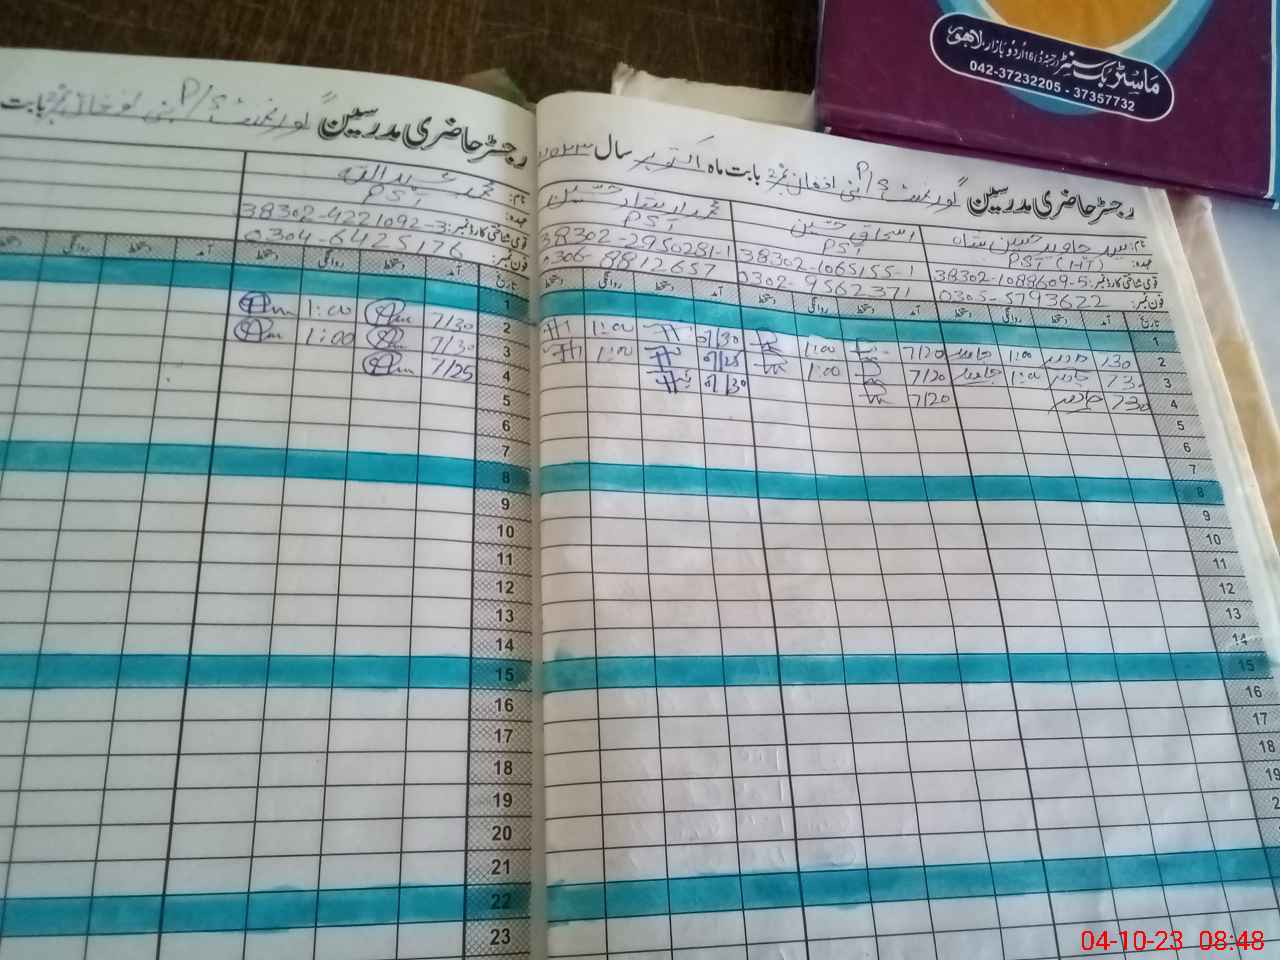 ماسٹر بک سنٹر (رجسٹرڈ) 16 اُردو بازار، لاہور
042-37232205 - 37357732
رجسٹر حاضری مدرسین گورنمنٹ P/S بنی افغان نمبر 2 بابت ماہ اکتوبر سال ۲۰۲۳
نام: سید جاوید حسین شاہ اسحاق حسین محمد ارشاد حسین
عہدہ: PST (HT) PST PST
قومی شناختی کارڈ نمبر: 38302-1088609-5 38302-1065155-1 38302-2950281-1
فون نمبر: 0305-5793622 0302-9562371 0306-8812657
تاریخ آمد دستخط روانگی دستخط آمد دستخط روانگی دستخط آمد دستخط روانگی دستخط
1
2 730 جاوید 1:00 جاوید 7/20 1:00 7/30 1:00
3 730 جاوید 1:00 جاوید 7/20 1:00 7/25 1:00
4 730 جاوید 7/20 7/30
5
6
7
8
9
10
11
12
13
14
15
16
17
18
19
رجسٹر حاضری مدرسین گورنمنٹ P/S بنی افغان نمبر 2 بابت
نام: محمد عبداللہ
عہدہ: PST
قومی شناختی کارڈ نمبر: 38302-4221092-3
فون نمبر: 0304-6425176
تاریخ آمد دستخط روانگی دستخط آمد دستخط روانگی دستخط
1
2 7/30 1:00
3 7/30 1:00
4 7/25
5
6
7
8
9
10
11
12
13
14
15
16
17
18
19
20
21
22
23
04-10-23 08:48